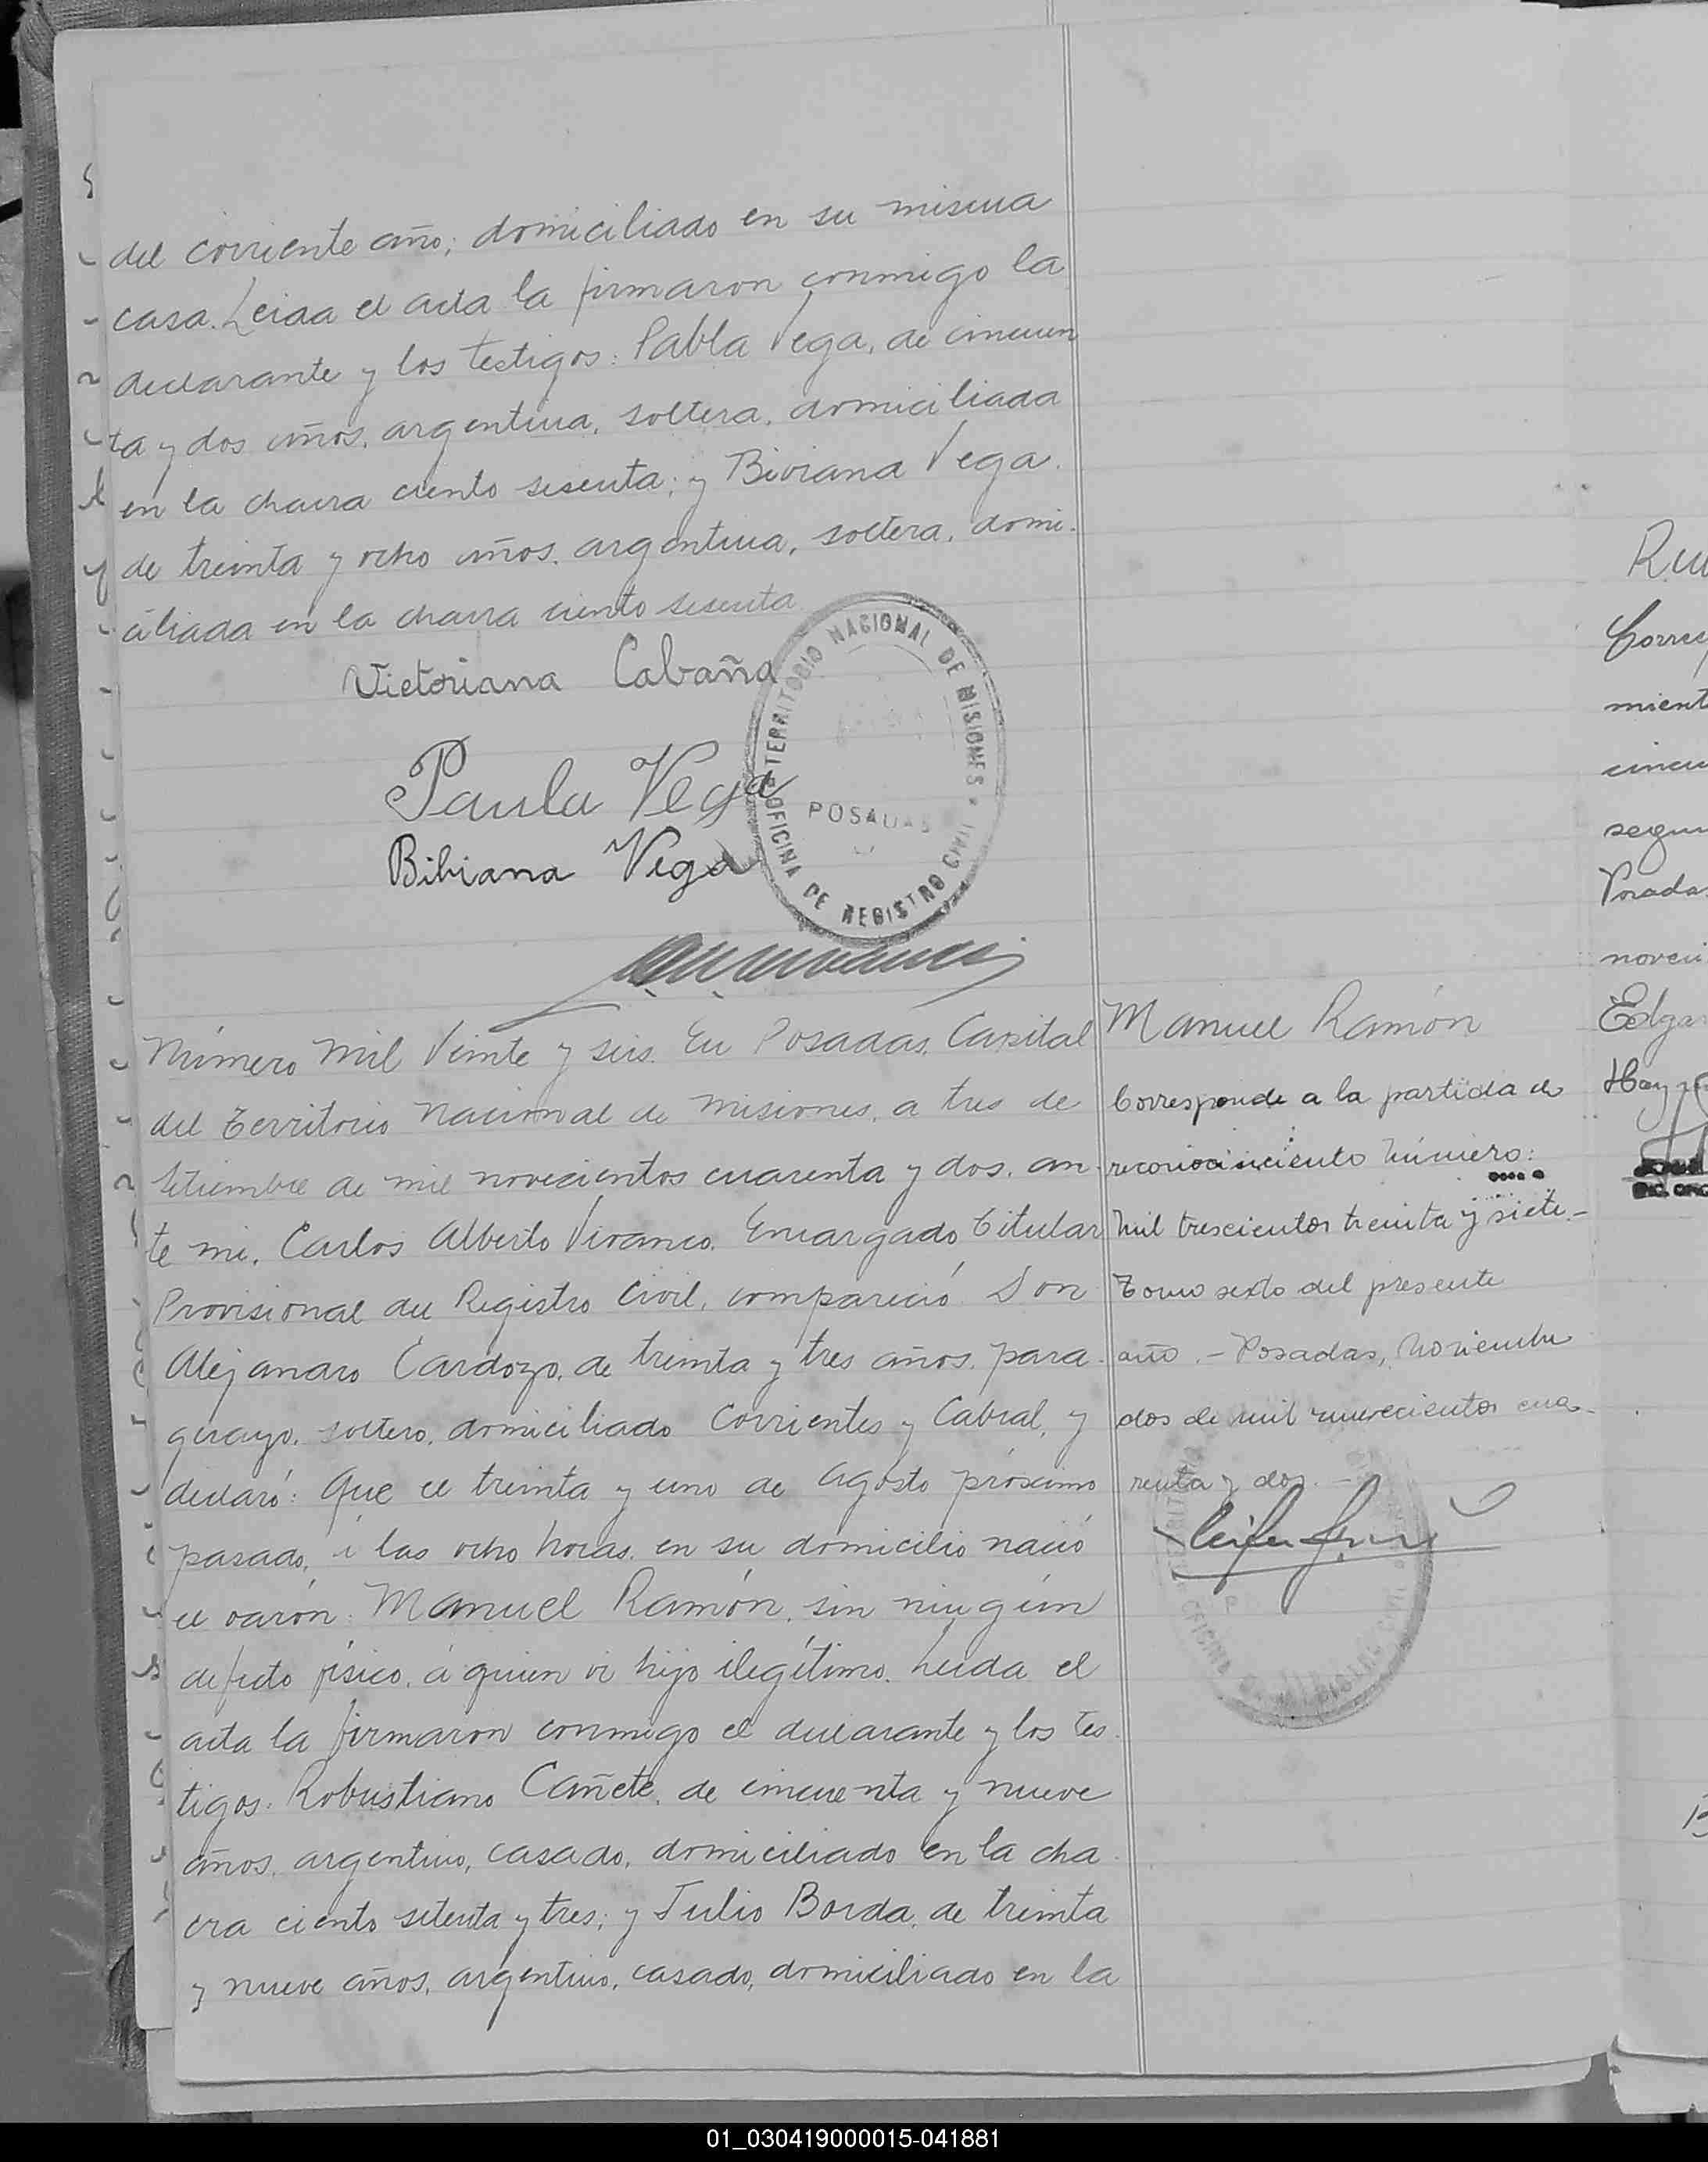 del corriente año; domiciliado en su misma
casa. Leida el acta la firmaron conmigo la
declarante y los testigos: Pabla Vega, de cincuen
ta y dos años, argentina, soltera, domiciliada
en la chacra ciento sesenta; y Biviana Vega.
de treinta y ocho años. argentina, soltera, domi-
ciliada en la chacra ciento sesenta
Victoriana Cabaña
Paula Vega
Bibiana Vega
TERRITORIO NACIONAL DE MISIONES
POSADAS
OFICINA DE REGISTRO CIVIL
Número Mil Veinte y seis. En Posadas, Capital
del Territorio Nacional de Misiones, a tres de
Setiembre de mil novecientos cuarenta y dos. an-
te mi, Carlos Alberto Vivanco. Encargado Titular
Provisional del Registro Civil, compareció Don
Alejandro Cardozo, de treinta y tres años. para-
guayo, soltero, domiciliado Corrientes y Cabral, y
declaró: Que el treinta y uno de Agosto próximo
pasado, á las ocho horas, en su domicilio nació
el varón: Manuel Ramón, sin ningún
defecto físico, á quien vi hijo ilegítimo. Leida el
acta la firmaron conmigo el declarante y los tes-
tigos: Robustiano Cañete, de cincuenta y nueve
años, argentino, casado, domiciliado en la cha-
cra ciento setenta y tres; y Julio Borda, de treinta
y nueve años, argentino, casado, domiciliado en la
Manuel Ramón
Corresponde a la partida de
reconocimiento número:
mil trescientos treinta y siete.-
Tomo sexto del presente
año.- Posadas, Noviembre
dos de mil novecientos cua-
renta y dos.-
OFICINA
CIVIL
Corres
mient
cincu
segun
Posadas
noveci
Edgar
Hay
01_030419000015-041881